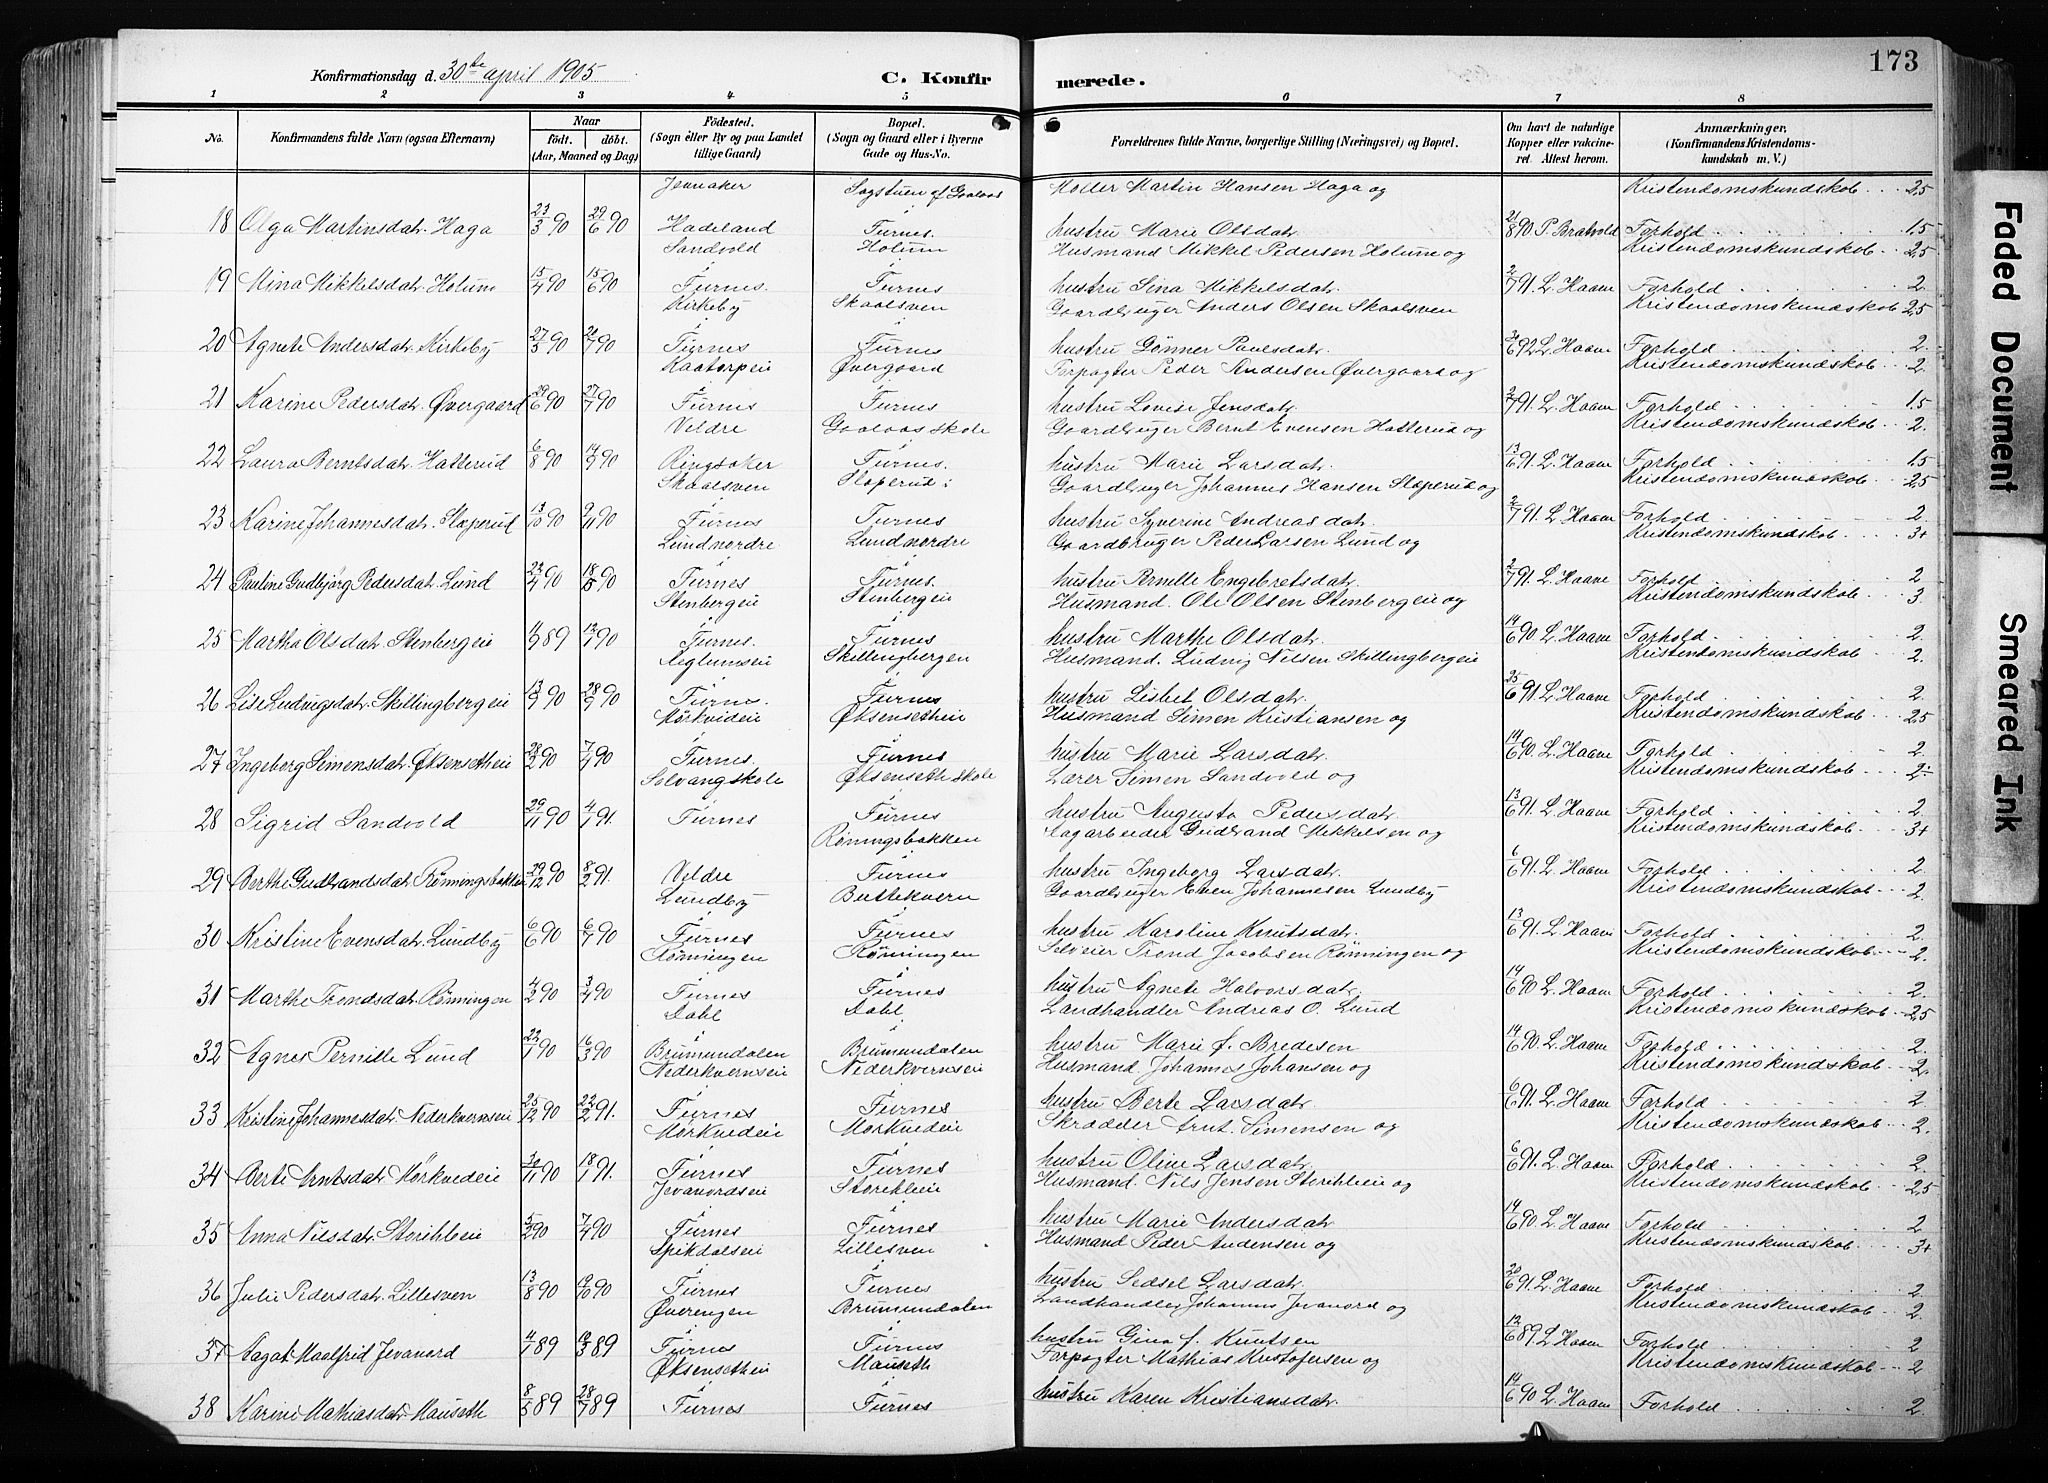 173
Konfirmationsdag d. 30te april 1905 C. Konfirmerede.
1 2 3 4 5 6 7 8
No. Konfirmandens fulde Navn (ogsaa Efternavn) Naar födt. döbt. (Aar, Maaned og Dag) Födested. (Sogn eller By og paa Landet tillige Gaard) Bopæl. (Sogn og Gaard eller i Byerne Gade og Hus-No. Forældrenes fulde Navne, borgerlige Stilling (Næringsvei) og Bopæl. Om havt de naturlige Kopper eller vaccineret. Attest herom. Anmærkninger. (Konfirmandens Kristendomskundskab m. V.)
Jevnaker Sagstuen af Gaalaas Holder Martin Hansen Haga og Kristendomskundskab . . . 2,5
18 Olga Martinsdat. Haga 23/3 90 29/6 90 Hadeland Furnes. hustru Marie Olsdat. 21/8 90 P. Bratvold Forhold 1.5
Sandvold Holum Husmand Mikkel Pedersen Holum og Kristendomskundskab . . 2,5
19 Mina Mikkelsdat. Holum 15/4 90 15/6 90 Furnes. Furnes hustru Sina Mikkelsdat. 2/7 91. L. Haave Forhold 2.
Kirkeby Skaalsven Gaardbruger Anders Olsen Skaalsven Kristendomskundskab 2,5
20 Agnete Andersdat. Kirkeby 27/3 90 20/7 90 Furnes Furnes hustru Gønner Paulsdat. 30/6 92 L. Haave Forhold 2.
Kaatorpeie Øvergaard Forpagter Peder Andersen Øvergaard og Kristendomskundskab . . 2.
21 Karine Pedersdat. Øvergaard 29/6 90 27/7 90 Furnes Furnes hustru Lovise Jensdat. 2/7 91. L. Haave Forhold 1.5
Veldre Gaalaas Skole Gaardbruger Bernt Evensen Hatterud og Kristendomskundskab . . 2.
22 Laura Berntsdat. Hatterud 6/8 90 14/9 90 Ringsaker Furnes. hustru Marie Larsdat. 13/6 91. L. Haave Forhold 1.5
Skaalsven Sloperud Gaardbruger Johannes Hansen Sloperud og Kristendomskundskab . . 2,5
23 Karine Johannesdat. Sloperud 13/10 90 9/11 90 Furnes Furnes hustru Syverine Andreasdat. 2/7 91. L. Haave Forhold 2.
Lund nordre Lund nordre Gaardbruger Peder Larsen Lund og Kristendomskundskab . . 3+
24 Pauline Gudbjørg Pedersdat. Lund Furnes Furnes. hustru Pernille Engebretsdat. 2/7 91. L. Haave Forhold 2
Stenbergeie Stenbergeie Husmand. Ole Olsen Stenbergeie og Kristendomskundskab . . 3.
25 Martha Olsdat. Stenbergeie 89 12/1 90 Furnes. Furnes hustru Marthe Olsdat. 14/6 90 L. Haave Forhold 2.
Skillingbergeie Husmand. Ludvig Nilsen Skillingbergeie Kristendomskundskab . . 2.
26 Lise Ludvigsdat. Skillingbergeie 13/9 90 28/9 90 Furnes. Furnes hustru Lisbet Olsdat. 25/6 91. L. Haave Forhold 2.
Mørkvedeie Øksensetheie Husmand Simen Kristiansen og Kristendomskundskab . . 2,5
27 Ingeborg Simensdat. Øksensetheie 28/2 90 7/4 90 Furnes. Furnes hustru Marie Larsdat. 14/6 90. L. Haave Forhold 2.
Solvang skole Øksenseth skole Lærer Simen Sandvold og Kristendomskundskab . . 2-
28 Sigrid Sandvold 29/11 90 4/1 91. Furnes Furnes hustru Augusta Pedersdat. 13/6 91. L. Haave Forhold 2
Røningsbakken Sagarbeider Gudbrand Mikkelsen og Kristendomskundskab . . 3+
29 Berthe Gudbrandsdat. Rønningsbakken 29/12 90 8/2 91. Veldre Furnes hustru Ingeborg Larsdat. 6/6 91. L. Haave Forhold 2.
Lundby Buttekvern Gaardbruger Even Johannesen Lundby Kristendomskundskab . . 2.
30 Kristine Evensdat. Lundby 6/6 90 6/7 90 Furnes Furnes hustru Karoline Knutsdat. 13/6 91. L. Haave Forhold 2.
Rønningen Rønningen Selveier Trond Jacobsen Rønningen og Kristendomskundskab . . 2.
31 Marthe Trondsdat. Rønningen 4/2 90 3/4 90 Furnes Furnes hustru Agnete Halvorsdat. 14/6 90 L. Haave Forhold 2.
Dahl Dahl Landhandler Andreas O. Lund Kristendomskundskab . . 2,5
32 Agnes Pernille Lund 22/1 90 16/3 90 Brumundalen Brumundalen hustru Marie f. Bredesen 14/6 90. L. Haave Forhold 2.
Nederkvernseie Nederkvernseie Husmand. Johannes Johansen og Kristendomskundskab . . 2.
33 Kristine Johannesdat. Nederkvernseie 25/12 90 22/2 91. Furnes Furnes hustru Berte Larsdat. 6/6 91. L. Haave Forhold 2
Mørkvedeie Mørkvedeie Skrædder Arnt. Simensen og Kristendomskundskab . . 2.
34 Berte Arntsdat. Mørkvedeie 30/11 90 18/1 91. Furnes Furnes hustru Oline Larsdat. 6/6 91. L. Haave Forhold 2.
Jevanordseie Storihleie Husmand. Nils Jensen Storihleie og Kristendomskundskab . . 2,5
35 Anna Nilsdat. Storihleie 5/2 90 7/4 90 Furnes Furnes hustru Marie Andersdat. 14/6 90 L. Haave Forhold 2
Spikdalseie Lillesven Husmand Peder Andersen og Kristendomskundskab . . 3+
36 Julie Pedersdat. Lillesven 13/8 90 Furnes Furnes hustru Sedsel Larsdat. 20/6 91. L. Haave Forhold 2
Øverengen Brumundalen Landhandler Johannes Jevanord og Kristendomskundskab . . 2.
37 Aagot Maalfrid Jevanord 4/1 89 10/3 89 Furnes Furnes hustru Gina f. Knutsen 12/6 89. L. Haave Forhold 2
Øksensetheie Mauseth Forpagter Mathias Kristofersen og Kristendomskundskab . . 2
38 Karine Mathiasdat. Mauseth 8/5 89 28/7 89 Furnes Furnes hustru Karen Kristiansdat. 14/6 90 L. Haave Forhold 2.
Faded Document
Smeared Ink